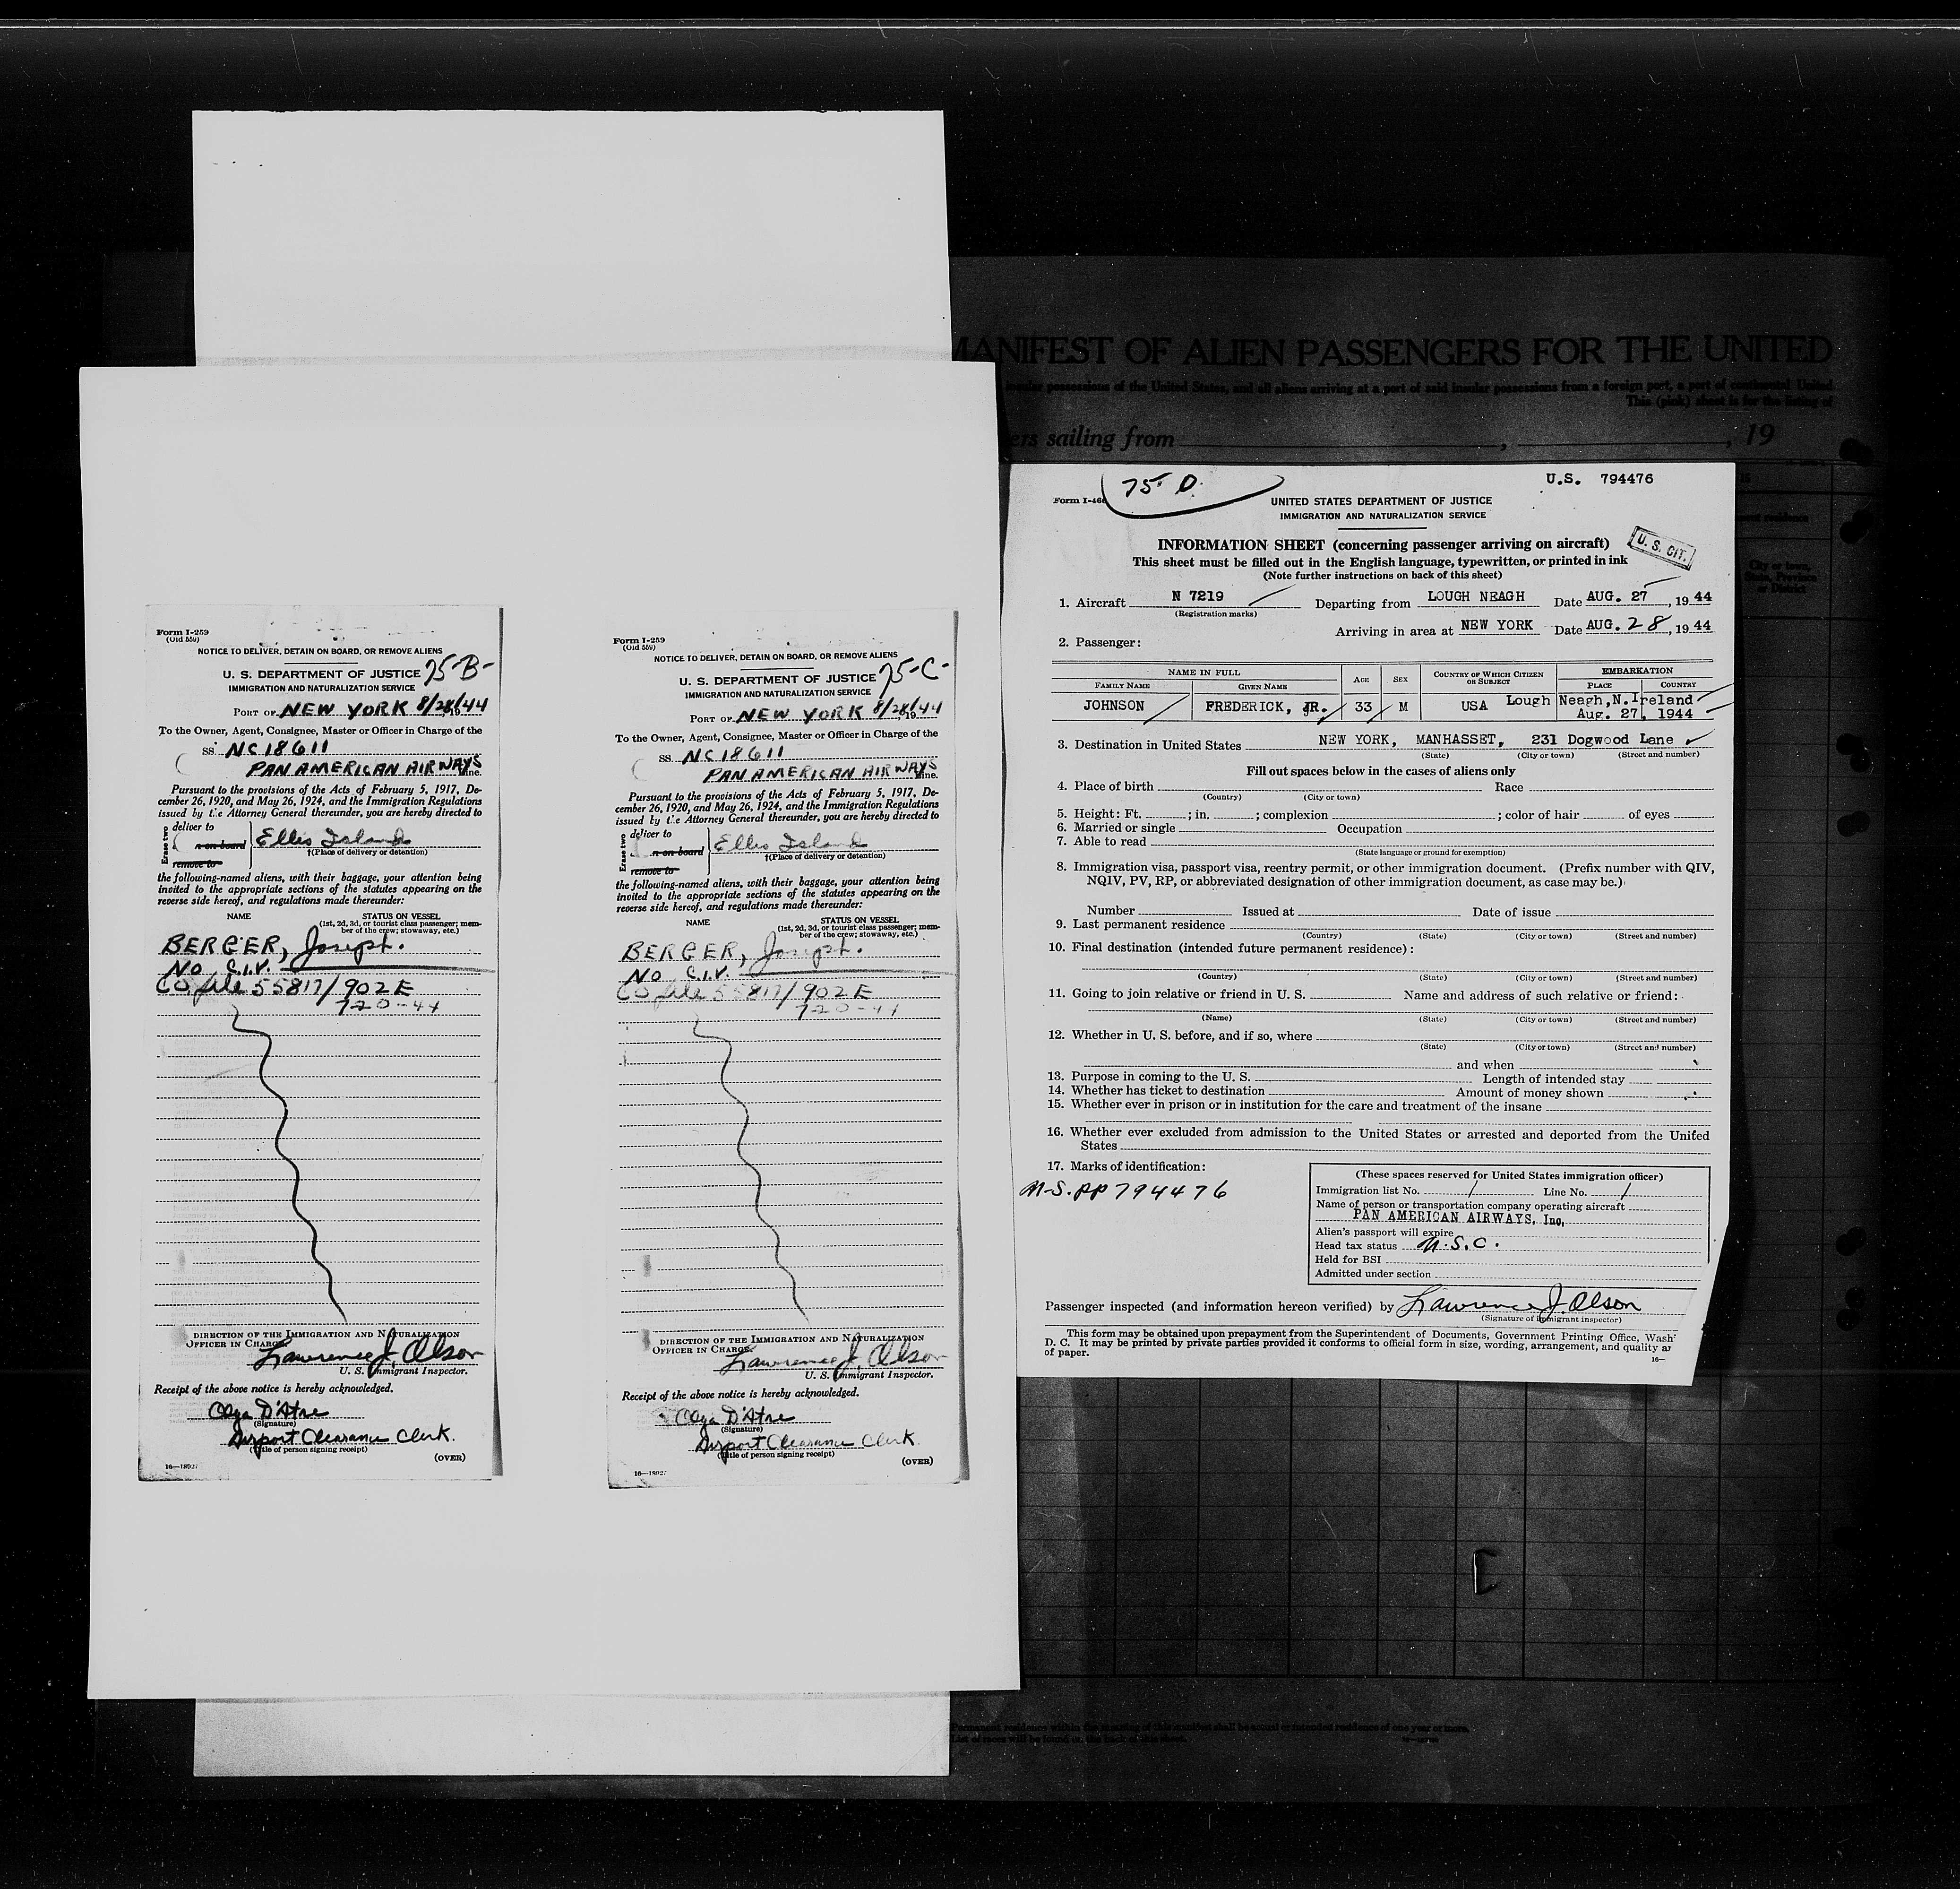 Form I-259
(Old 559)
NOTICE TO DELIVER, DETAIN ON BOARD, OR REMOVE ALIENS
75-B-
U. S. DEPARTMENT OF JUSTICE
IMMIGRATION AND NATURALIZATION SERVICE
PORT OF NEW YORK 8/28/44
To the Owner, Agent, Consignee, Master or Officer in Charge of the
SS. NC18611
PAN AMERICAN AIRWAYS Line.
Pursuant to the provisions of the Acts of February 5, 1917, De-
cember 26, 1920, and May 26, 1924, and the Immigration Regulations
issued by the Attorney General thereunder, you are hereby directed to
Erase two
deliver to
n on board
remove to
Ellis Island
†(Place of delivery or detention)
the following-named aliens, with their baggage, your attention being
invited to the appropriate sections of the statutes appearing on the
reverse side hereof, and regulations made thereunder:
NAME
STATUS ON VESSEL
(1st, 2d, 3d, or tourist class passenger; mem-
ber of the crew; stowaway, etc.)
BERGER, Joseph.
No C.I.V.
CO file 55817/902E
720-44
DIRECTION OF THE IMMIGRATION AND NATURALIZATION
OFFICER IN CHARGE.
Lawrence J. Olson
U. S. Immigrant Inspector.
Receipt of the above notice is hereby acknowledged.
Olga D'Atre
(Signature)
Airport Clearance Clerk.
(Title of person signing receipt)
(OVER)
Form I-259
(Old 559)
NOTICE TO DELIVER, DETAIN ON BOARD, OR REMOVE ALIENS
75-C-
U. S. DEPARTMENT OF JUSTICE
IMMIGRATION AND NATURALIZATION SERVICE
PORT OF NEW YORK 8/28/1944
To the Owner, Agent, Consignee, Master or Officer in Charge of the
SS. NC18611
PAN AMERICAN AIRWAYS Line.
Pursuant to the provisions of the Acts of February 5, 1917, De-
cember 26, 1920, and May 26, 1924, and the Immigration Regulations
issued by the Attorney General thereunder, you are hereby directed to
Erase two
deliver to
n on board
remove to
Ellis Island
†(Place of delivery or detention)
the following-named aliens, with their baggage, your attention being
invited to the appropriate sections of the statutes appearing on the
reverse side hereof, and regulations made thereunder:
NAME
STATUS ON VESSEL
(1st, 2d, 3d, or tourist class passenger; mem-
ber of the crew; stowaway, etc.)
BERGER, Joseph.
No C.I.V.
CO file 55817/902E
720-44
DIRECTION OF THE IMMIGRATION AND NATURALIZATION
OFFICER IN CHARGE.
Lawrence J. Olson
U. S. Immigrant Inspector.
Receipt of the above notice is hereby acknowledged.
Olga D'Atre
(Signature)
Airport Clearance Clerk.
(Title of person signing receipt)
(OVER)
MANIFEST OF ALIEN PASSENGERS FOR THE UNITED
insular possessions of the United States, and all aliens arriving at a port of said insular possessions from a foreign port, a port of continental United
This (pink) sheet is for the listing of
ers sailing from , , 19
City or town,
State, Province
or District
75-D.
U.S. 794476
Form I-466
UNITED STATES DEPARTMENT OF JUSTICE
IMMIGRATION AND NATURALIZATION SERVICE
INFORMATION SHEET (concerning passenger arriving on aircraft)
U. S. CIT.
This sheet must be filled out in the English language, typewritten, or printed in ink
(Note further instructions on back of this sheet)
1. Aircraft N 7219 Departing from LOUGH NEAGH Date AUG. 27, 19 44
(Registration marks)
Arriving in area at NEW YORK Date AUG. 28, 19 44
2. Passenger:
NAME IN FULL
FAMILY NAME
GIVEN NAME
AGE
SEX
COUNTRY OF WHICH CITIZEN
OR SUBJECT
EMBARKATION
PLACE
COUNTRY
JOHNSON FREDERICK, JR. 33 M USA Lough Neagh, N.Ireland
Aug. 27, 1944
3. Destination in United States NEW YORK, MANHASSET, 231 Dogwood Lane
(State) (City or town) (Street and number)
Fill out spaces below in the cases of aliens only
4. Place of birth Race
(Country) (City or town)
5. Height: Ft. ; in. ; complexion ; color of hair of eyes
6. Married or single Occupation
7. Able to read
(State language or ground for exemption)
8. Immigration visa, passport visa, reentry permit, or other immigration document. (Prefix number with QIV,
NQIV, PV, RP, or abbreviated designation of other immigration document, as case may be.)
Number Issued at Date of issue
9. Last permanent residence
(Country) (State) (City or town) (Street and number)
10. Final destination (intended future permanent residence):
(Country) (State) (City or town) (Street and number)
11. Going to join relative or friend in U. S. Name and address of such relative or friend:
(Name) (State) (City or town) (Street and number)
12. Whether in U. S. before, and if so, where
(State) (City or town) (Street and number)
and when
13. Purpose in coming to the U. S. Length of intended stay
14. Whether has ticket to destination Amount of money shown
15. Whether ever in prison or in institution for the care and treatment of the insane
16. Whether ever excluded from admission to the United States or arrested and deported from the United
States
17. Marks of identification:
U.S. PP 794476
(These spaces reserved for United States immigration officer)
Immigration list No. 1 Line No. 1
Name of person or transportation company operating aircraft
PAN AMERICAN AIRWAYS, Inc.
Alien's passport will expire
Head tax status U.S.C.
Held for BSI
Admitted under section
Passenger inspected (and information hereon verified) by Lawrence J. Olson
(Signature of immigrant inspector)
This form may be obtained upon prepayment from the Superintendent of Documents, Government Printing Office, Wash
D. C. It may be printed by private parties provided it conforms to official form in size, wording, arrangement, and quality
of paper.
16—
Permanent residence within the meaning of this manifest shall be actual or intended residence of one year or more.
List of races will be found on the back of this sheet.